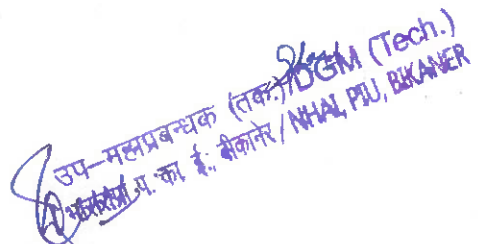 उप-महाप्रबन्धक (तक.)/DGM (Tech.)
प. का. ई., बीकानेर/NHAI, PIU, BIKANER